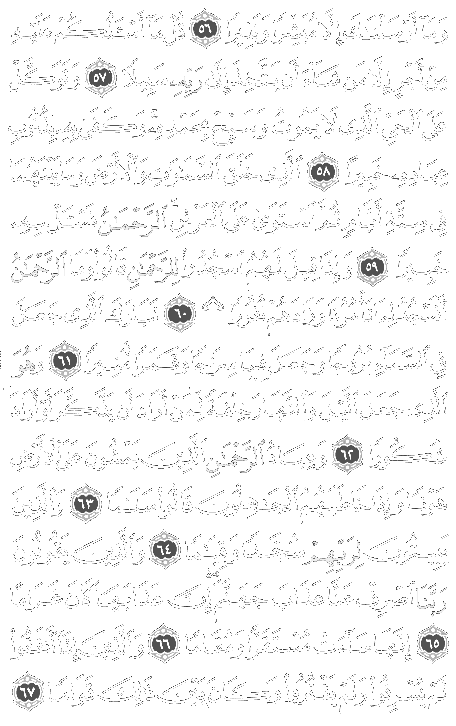 وَمَا أَرْسَلْنَاكَ إِلَّا مُبَشِّرًا وَنَذِيرًا ٥٦ قُلْ مَا أَسْأَلُكُمْ عَلَيْهِ
مِنْ أَجْرٍ إِلَّا مَن شَاءَ أَن يَتَّخِذَ إِلَىٰ رَبِّهِ سَبِيلًا ٥٧ وَتَوَكَّلْ
عَلَى الْحَيِّ الَّذِي لَا يَمُوتُ وَسَبِّحْ بِحَمْدِهِ وَكَفَىٰ بِهِ بِذُنُوبِ
عِبَادِهِ خَبِيرًا ٥٨ الَّذِي خَلَقَ السَّمَاوَاتِ وَالْأَرْضَ وَمَا بَيْنَهُمَا
فِي سِتَّةِ أَيَّامٍ ثُمَّ اسْتَوَىٰ عَلَى الْعَرْشِ الرَّحْمَٰنُ فَاسْأَلْ بِهِ
خَبِيرًا ٥٩ وَإِذَا قِيلَ لَهُمُ اسْجُدُوا لِلرَّحْمَٰنِ قَالُوا وَمَا الرَّحْمَٰنُ
أَنَسْجُدُ لِمَا تَأْمُرُنَا وَزَادَهُمْ نُفُورًا ٦٠ تَبَارَكَ الَّذِي جَعَلَ
فِي السَّمَاءِ بُرُوجًا وَجَعَلَ فِيهَا سِرَاجًا وَقَمَرًا مُّنِيرًا ٦١ وَهُوَ
الَّذِي جَعَلَ اللَّيْلَ وَالنَّهَارَ خِلْفَةً لِّمَنْ أَرَادَ أَن يَذَّكَّرَ أَوْ أَرَادَ
شُكُورًا ٦٢ وَعِبَادُ الرَّحْمَٰنِ الَّذِينَ يَمْشُونَ عَلَى الْأَرْضِ
هَوْنًا وَإِذَا خَاطَبَهُمُ الْجَاهِلُونَ قَالُوا سَلَامًا ٦٣ وَالَّذِينَ
يَبِيتُونَ لِرَبِّهِمْ سُجَّدًا وَقِيَامًا ٦٤ وَالَّذِينَ يَقُولُونَ
رَبَّنَا اصْرِفْ عَنَّا عَذَابَ جَهَنَّمَ إِنَّ عَذَابَهَا كَانَ غَرَامًا
٦٥ إِنَّهَا سَاءَتْ مُسْتَقَرًّا وَمُقَامًا ٦٦ وَالَّذِينَ إِذَا أَنفَقُوا
لَمْ يُسْرِفُوا وَلَمْ يَقْتُرُوا وَكَانَ بَيْنَ ذَٰلِكَ قَوَامًا ٦٧